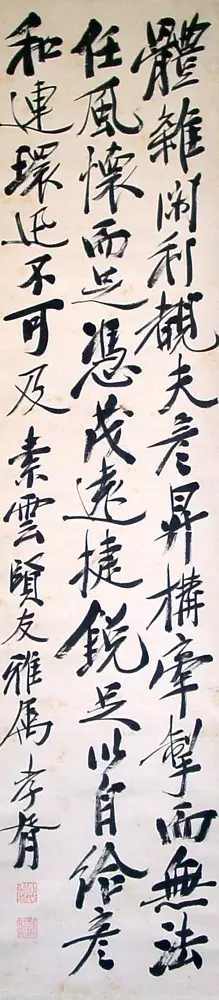 體雜閑利覩夫彥昇構牽掣而無法
任風懷而足憑茂遠捷銳足以自給彥
和連環迅不可及 素雲賢友雅属 孝胥